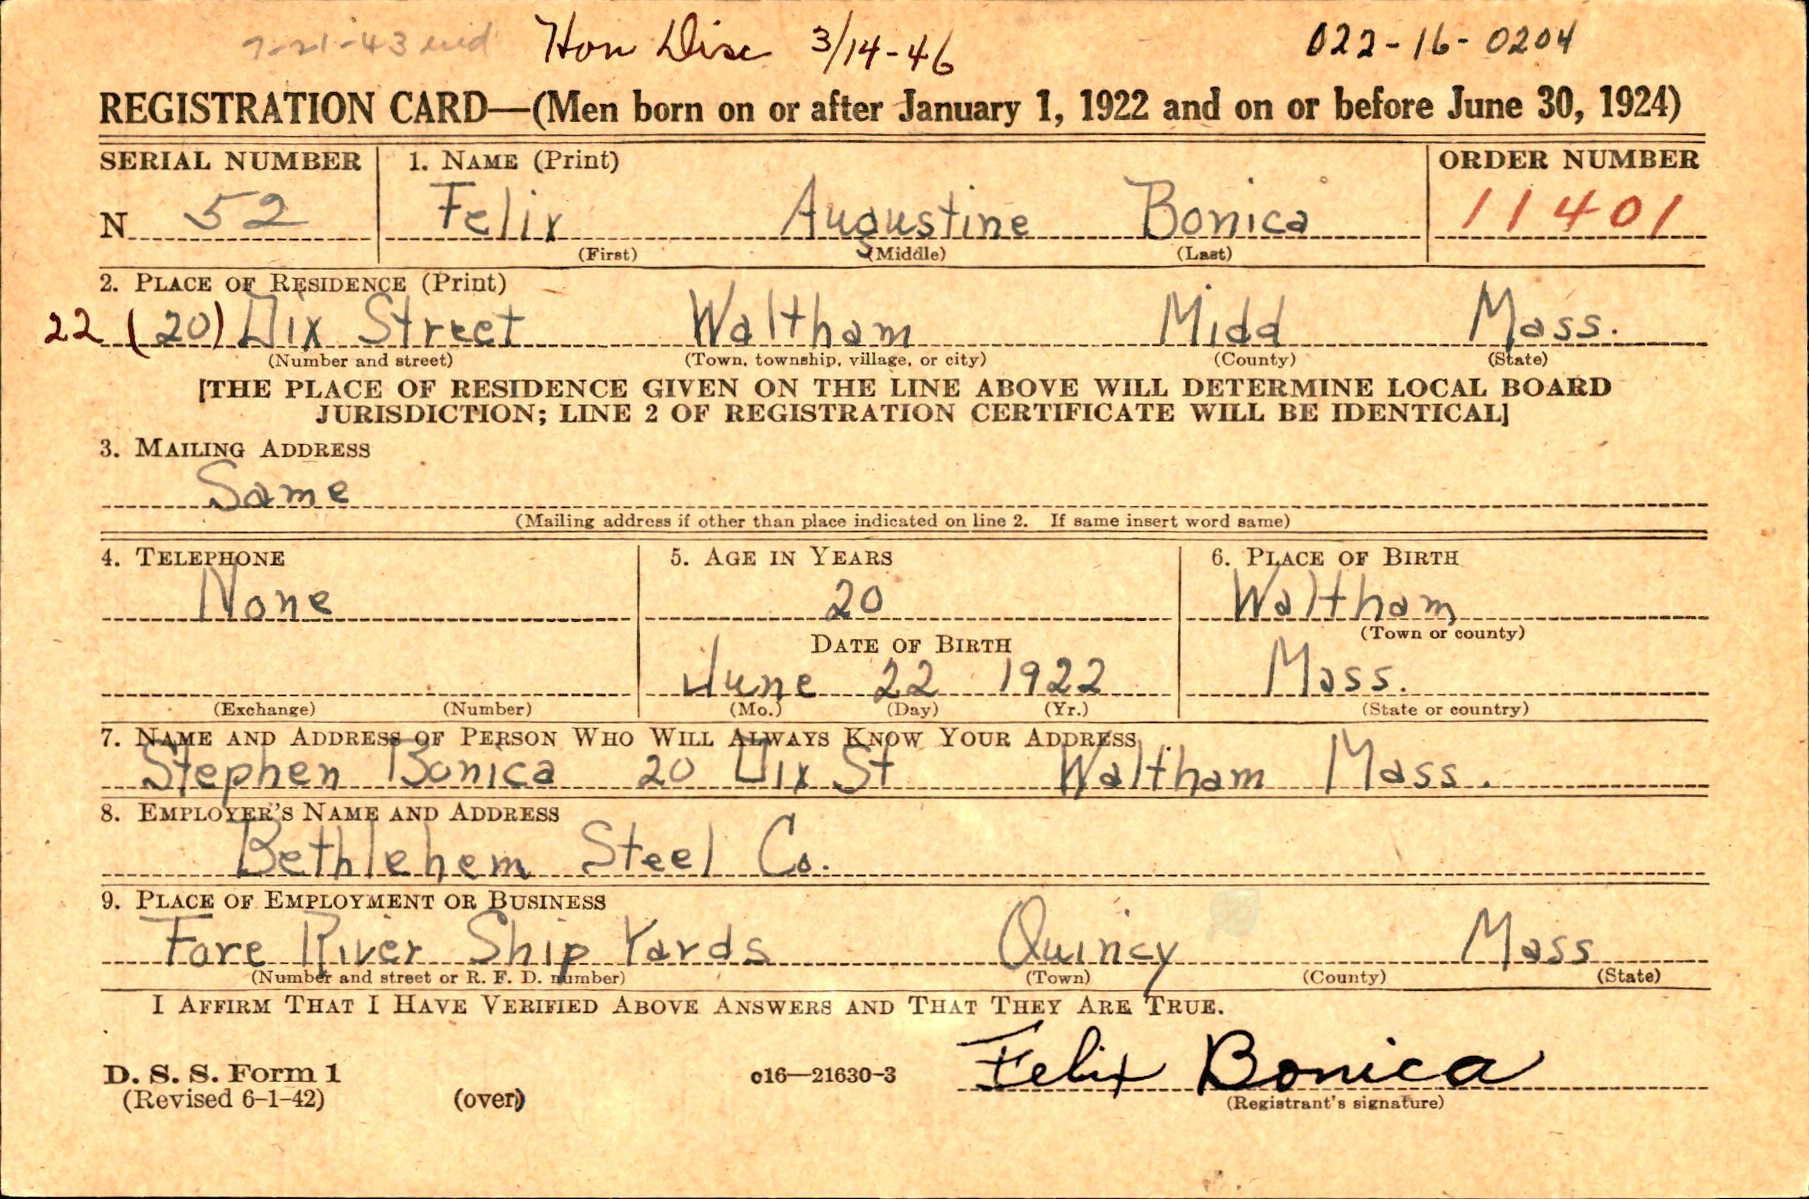 7-21-43 Hon Disc 3/14-46 022-16-0204
REGISTRATION CARD—(Men born on or after January 1, 1922 and on or before June 30, 1924)
SERIAL NUMBER 1. NAME (Print) ORDER NUMBER
N 52 Felix Augustine Bonica 11401
(First) (Middle) (Last)
2. PLACE OF RESIDENCE (Print)
22 (20) Dix Street Waltham Midd Mass.
(Number and street) (Town, township, village, or city) (County) (State)
[THE PLACE OF RESIDENCE GIVEN ON THE LINE ABOVE WILL DETERMINE LOCAL BOARD
JURISDICTION; LINE 2 OF REGISTRATION CERTIFICATE WILL BE IDENTICAL]
3. MAILING ADDRESS
Same
(Mailing address if other than place indicated on line 2. If same insert word same)
4. TELEPHONE 5. AGE IN YEARS 6. PLACE OF BIRTH
None 20 Waltham
(Town or county)
DATE OF BIRTH
June 22 1922 Mass.
(Exchange) (Number) (Mo.) (Day) (Yr.) (State or country)
7. NAME AND ADDRESS OF PERSON WHO WILL ALWAYS KNOW YOUR ADDRESS
Stephen Bonica 20 Dix St Waltham Mass.
8. EMPLOYER'S NAME AND ADDRESS
Bethlehem Steel Co.
9. PLACE OF EMPLOYMENT OR BUSINESS
Fore River Ship Yards Quincy Mass
(Number and street or R. F. D. number) (Town) (County) (State)
I AFFIRM THAT I HAVE VERIFIED ABOVE ANSWERS AND THAT THEY ARE TRUE.
Felix Bonica
D. S. S. Form 1 c16—21630-3
(Revised 6-1-42) (over) (Registrant's signature)